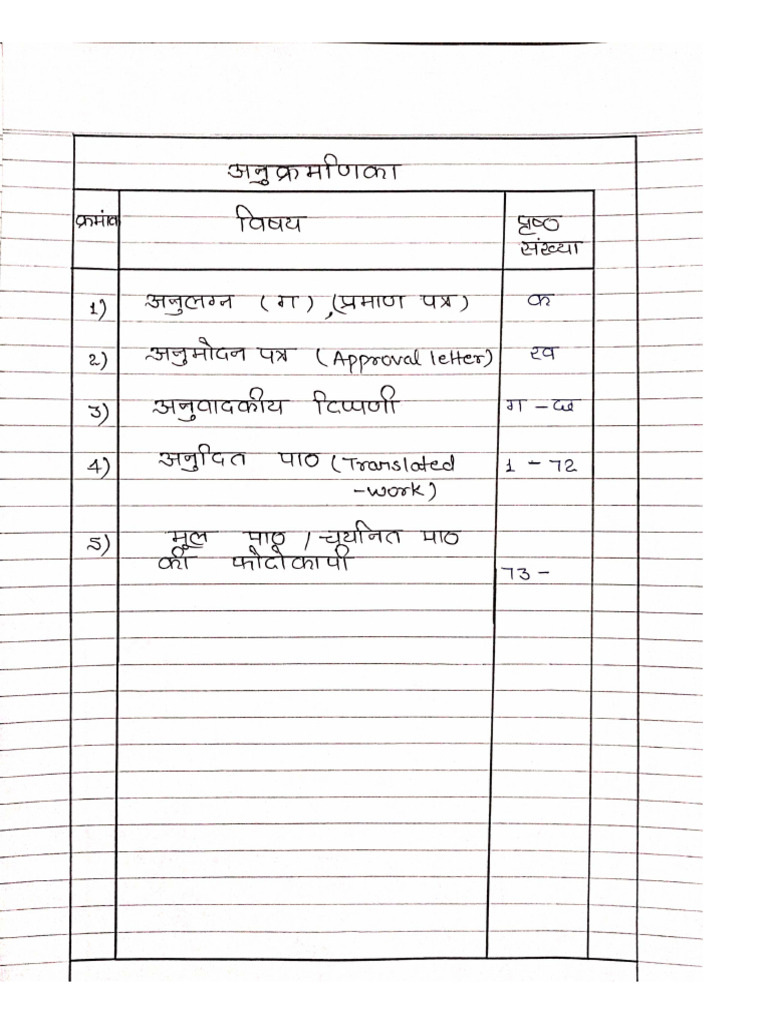 अनुक्रमणिका
क्रमांक विषय पृष्ठ
संख्या
1) अनुलग्न (ग), (प्रमाण पत्र) क
2) अनुमोदन पत्र (Approval letter) ख
3) अनुवादकीय टिप्पणी ग -
4) अनुदित पाठ (Translated 1 - 72
-work)
5) मूल पाठ / चयनित पाठ
की फोटोकापी
73 -